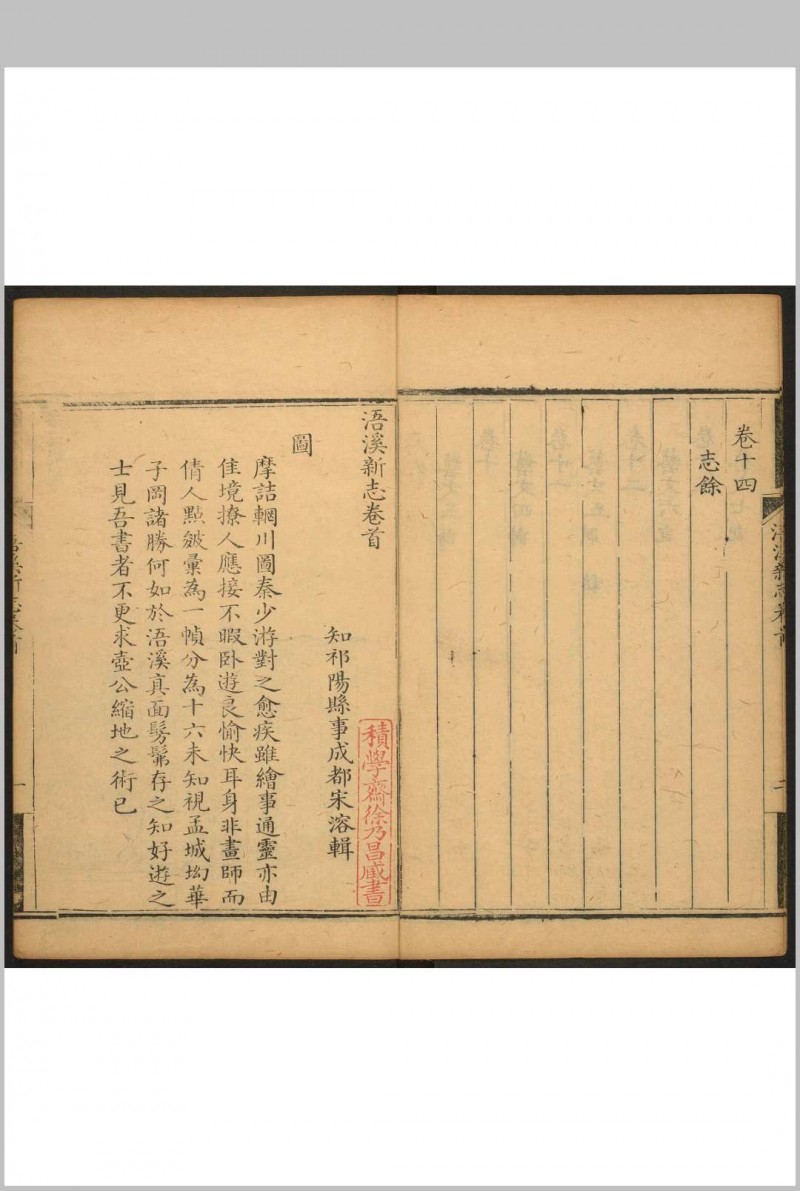 卷十四
志餘
浯溪新志卷首
知祁陽縣事成都宋溶輯
積學齋徐乃昌藏書
圖
摩詰輞川圖秦少游對之愈疾雖繪事通靈亦由
佳境撩人應接不暇卧遊良愉快耳身非畫師而
倩人點皴彙為一幀分為十六未知視孟城坳華
子岡諸勝何如於浯溪真面髣髴存之知好遊之
士見吾書者不更求壺公縮地之術已